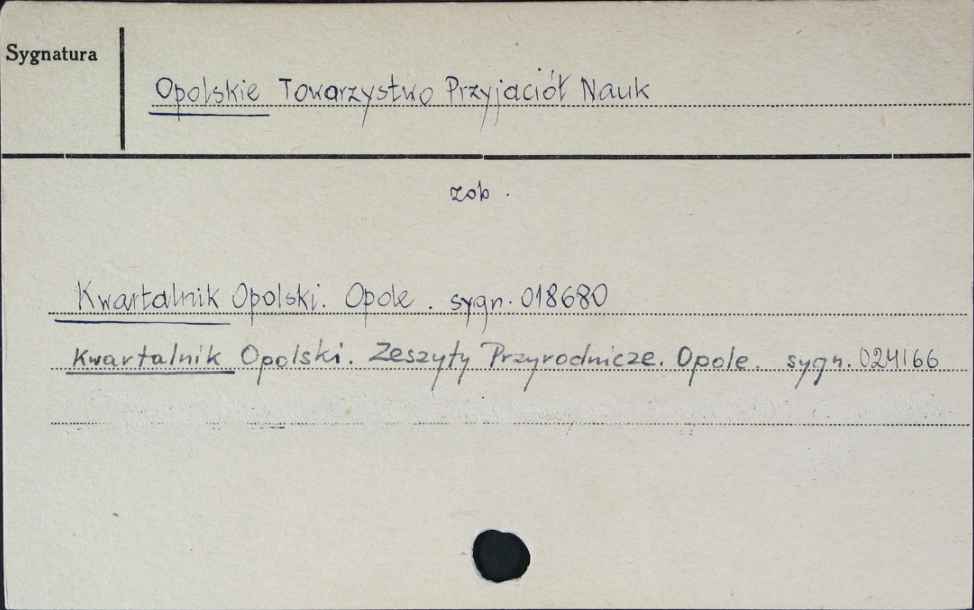 Sygnatura
Opolskie Towarzystwo Przyjaciół Nauk
zob.
Kwartalnik Opolski. Opole. sygn. 018680
Kwartalnik Opolski. Zeszyty Przyrodnicze. Opole. sygn. 024166